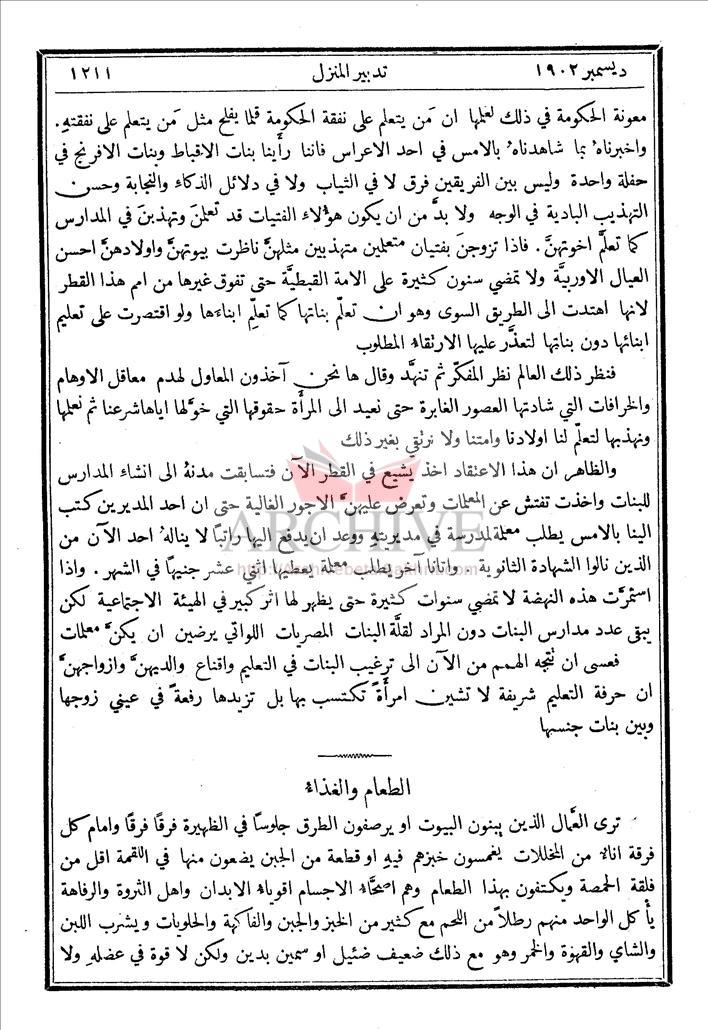 ديسمبر ١٩٠٢ تدبير المنزل ١٢١١
معونة الحكومة في ذلك لعلمها ان مَن يتعلم على نفقة الحكومة قلما يفلح مثل مَن يتعلم على نفقتهِ .
واخبرناهُ بما شاهدناهُ بالامس في احد الاعراس فاننا رأينا بنات الاقباط وبنات الافرنج في
حفلة واحدة وليس بين الفريقين فرق لا في الثياب ولا في دلائل الذكاء والنجابة وحسن
التهذيب البادية في الوجه ولا بدَّ من ان يكون هؤلاء الفتيات قد تعلمنَ وتهذبنَ في المدارس
كما تعلَّم اخوتهنَّ . فاذا تزوجنَ بفتيان متعلمين متهذبين مثلهنَّ ناظرت بيوتهنَّ واولادهنَّ احسن
العيال الاوربيَّة ولا تمضي سنون كثيرة على الامة القبطيَّة حتى تفوق غيرها من امم هذا القطر
لانها اهتدت الى الطريق السوى وهو ان تعلّم بناتها كما تعلّم ابناءها ولو اقتصرت على تعليم
ابنائها دون بناتها لتعذَّر عليها الارتقاء المطلوب
فنظر ذلك العالم نظر المفكّر ثم تنهَّد وقال ها نحن آخذون المعاول لهدم معاقل الاوهام
والخرافات التي شادتها العصور الغابرة حتى نعيد الى المرأة حقوقها التي خوَّلها اياها شرعنا ثم نعلمها
ونهذبها لتعلّم لنا اولادنا وامتنا ولا نرتقي بغير ذلك
والظاهر ان هذا الاعتقاد اخذ يشيع في القطر الآن فتسابقت مدنهُ الى انشاء المدارس
للبنات واخذت تفتش عن المعلمات وتعرض عليهنَّ الاجور الغالية حتى ان احد المديرين كتب
الينا بالامس يطلب معلمة لمدرسة في مديريتهِ ووعد ان يدفع اليها راتبًا لا ينالهُ احد الآن من
الذين نالوا الشهادة الثانوية . واتانا آخر يطلب معلمة يعطيها اثني عشر جنيهًا في الشهر . واذا
استمرَّت هذه النهضة لا تمضي سنوات كثيرة حتى يظهر لها اثر كبير في الهيئة الاجتماعية لكن
يبقى عدد مدارس البنات دون المراد لقلَّة البنات المصريات اللواتي يرضين ان يكنَّ معلمات
فعسى ان تتجه الهمم من الآن الى ترغيب البنات في التعليم واقناع والديهنَّ وازواجهنَّ
ان حرفة التعليم شريفة لا تشين امرأةً تكتسب بها بل تزيدها رفعةً في عيني زوجها
وبين بنات جنسها
الطعام والغذاء
ترى العمَّال الذين يبنون البيوت او يرصفون الطرق جلوسًا في الظهيرة فرقًا فرقًا وامام كل
فرقة اناءٌ من المخللات يغمسون خبزهم فيهِ او قطعة من الجبن يضعون منها في اللقمة اقل من
فلقة الحمصة ويكتفون بهذا الطعام وهم اصحَّاء الاجسام اقوياء الابدان واهل الثروة والرفاهة
يأكل الواحد منهم رطلاً من اللحم مع كثير من الخبز والجبن والفاكهة والحلويات ويشرب اللبن
والشاي والقهوة والخمر وهو مع ذلك ضعيف ضئيل او سمين بدين ولكن لا قوة في عضلهِ ولا
ARCHIVE